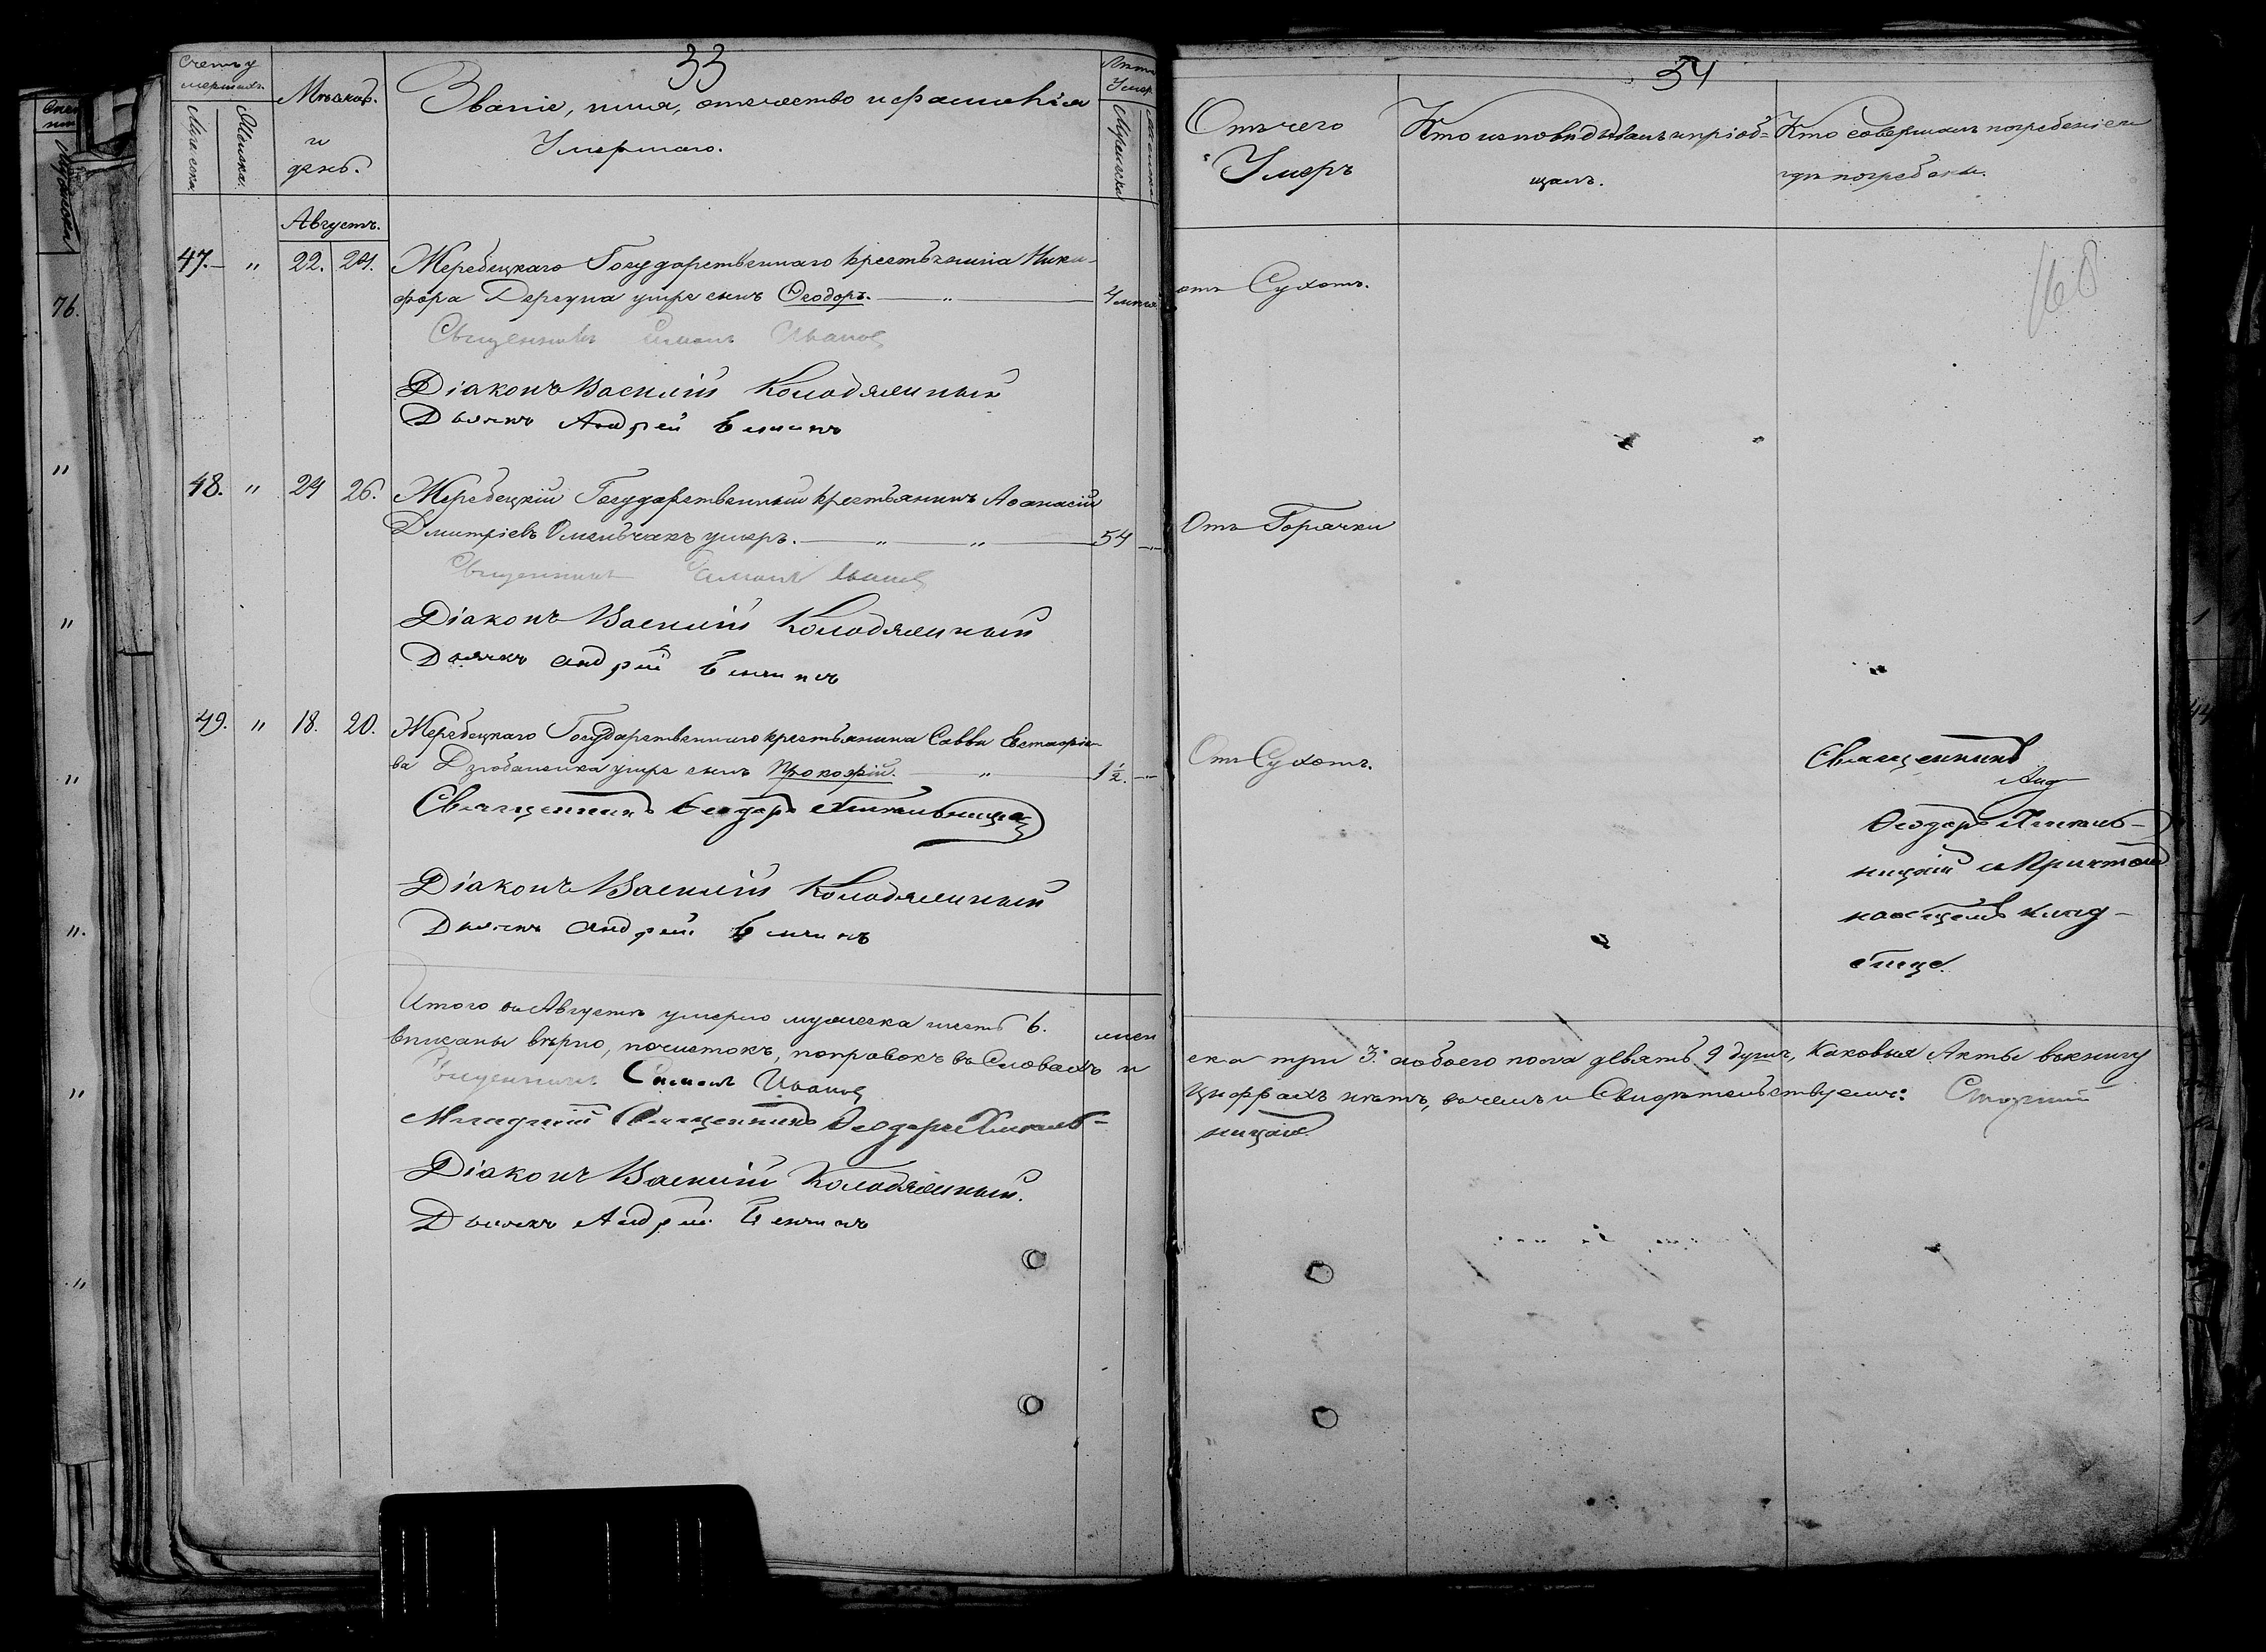 33
Счетъ у
мершихъ.
Мѣсяцъ
и
день.
Званіе, имя, отчество и фамилія
Умершаго.
Лѣта
Умер.
Муж. пола.
Женска.
Мужеска
Августъ.
47. " 22. 24. Жеребецкаго Государственнаго крестьянина Ники-
фора Дергуна умре сынъ Ѳеодоръ. — " — 4 мѣсяц
Священникъ Симонъ Ивановъ
Діаконъ Василій Колодяжный
Дьячкъ Андрей
48. " 24 26. Жеребецкій Государственный крестьянинъ Аѳанасій
Дмитріевъ Омельчакъ умеръ. — " — " — 54 —
Священникъ Симонъ Ивановъ
Діаконъ Василій Колодяжный
Дьячкъ Андрей
49. " 18. 20. Жеребецкаго Государственнаго крестьянина Саввы Евстафіе-
ва Дзюбаненка умре сынъ Прокофій. — " — 1½. —
Священникъ Ѳеодоръ
Діаконъ Василій Колодяжный
Дьячкъ Андрей
Итого въ Августѣ умерло мужеска шесть 6. жен
вписаны вѣрно, почистокъ, поправокъ въ Словахъ и
Священникъ Симонъ Ивановъ
Младшій Священникъ Ѳеодоръ
Діаконъ Василій Колодяжный.
Дьячкъ Андрей
34
Отъ чего
Умеръ
Кто исповѣдывалъ и пріоб-
щалъ.
Кто совершалъ погребеніе и
гдѣ погребены.
168
отъ Сухотъ.
Отъ Горячки
Отъ Сухотъ.
Священникъ
Ѳеодоръ
ницкій съ Причтомъ
на общемъ клад-
бище.
ска три 3. а обоего пола девять 9 душъ, каковыя Акты въ книгу
цифрахъ нѣтъ, въ чемъ и Свидѣтельствуемъ: Старшій
ницкій.